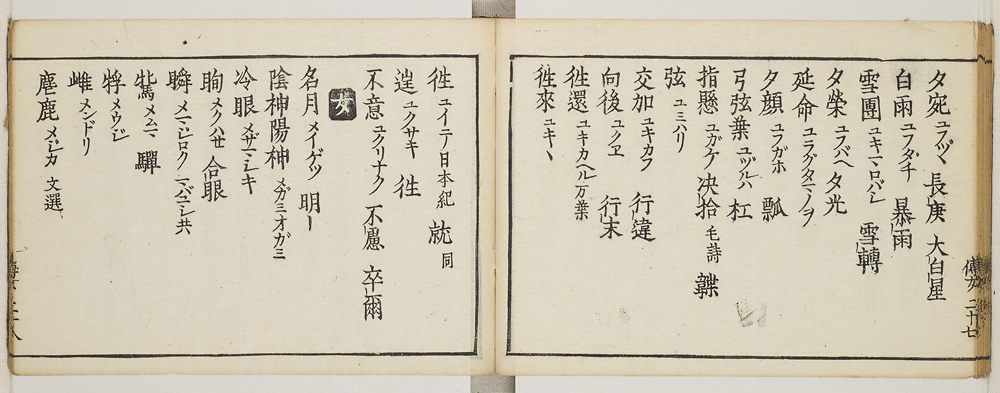 夕宛 ユフツヾ 長庚 大白星
白雨 ユフダチ 暴雨
雪團 ユキマロバシ 雪轉
夕榮 ユフバヘ 夕光
延命 ユラグタマノヲ
夕顔 ユフガホ 瓢
弓弦葉 ユヅルハ 杠
指懸 ユガケ 决拾 毛詩 韘
弦 ユミハリ
交加 ユキカフ 行違
向後 ユクヱ 行末
徃還 ユキカヘル 万葉
徃來 ユキヽ
徃 ユイテ 日本紀 就 同
逞 ユクサキ 徃
不意 ユクリナク 不慮 卒爾
女
名月 メイゲツ 明ー
陰神陽神 メガミオガミ
冷眼 メザマシキ
眴 メクハせ 合眼
瞬 メマジロク マバタキ 共
騭 メムマ 騲
牸 メウジ
雌 メンドリ
麀鹿 メジカ 文選
傳 二十七